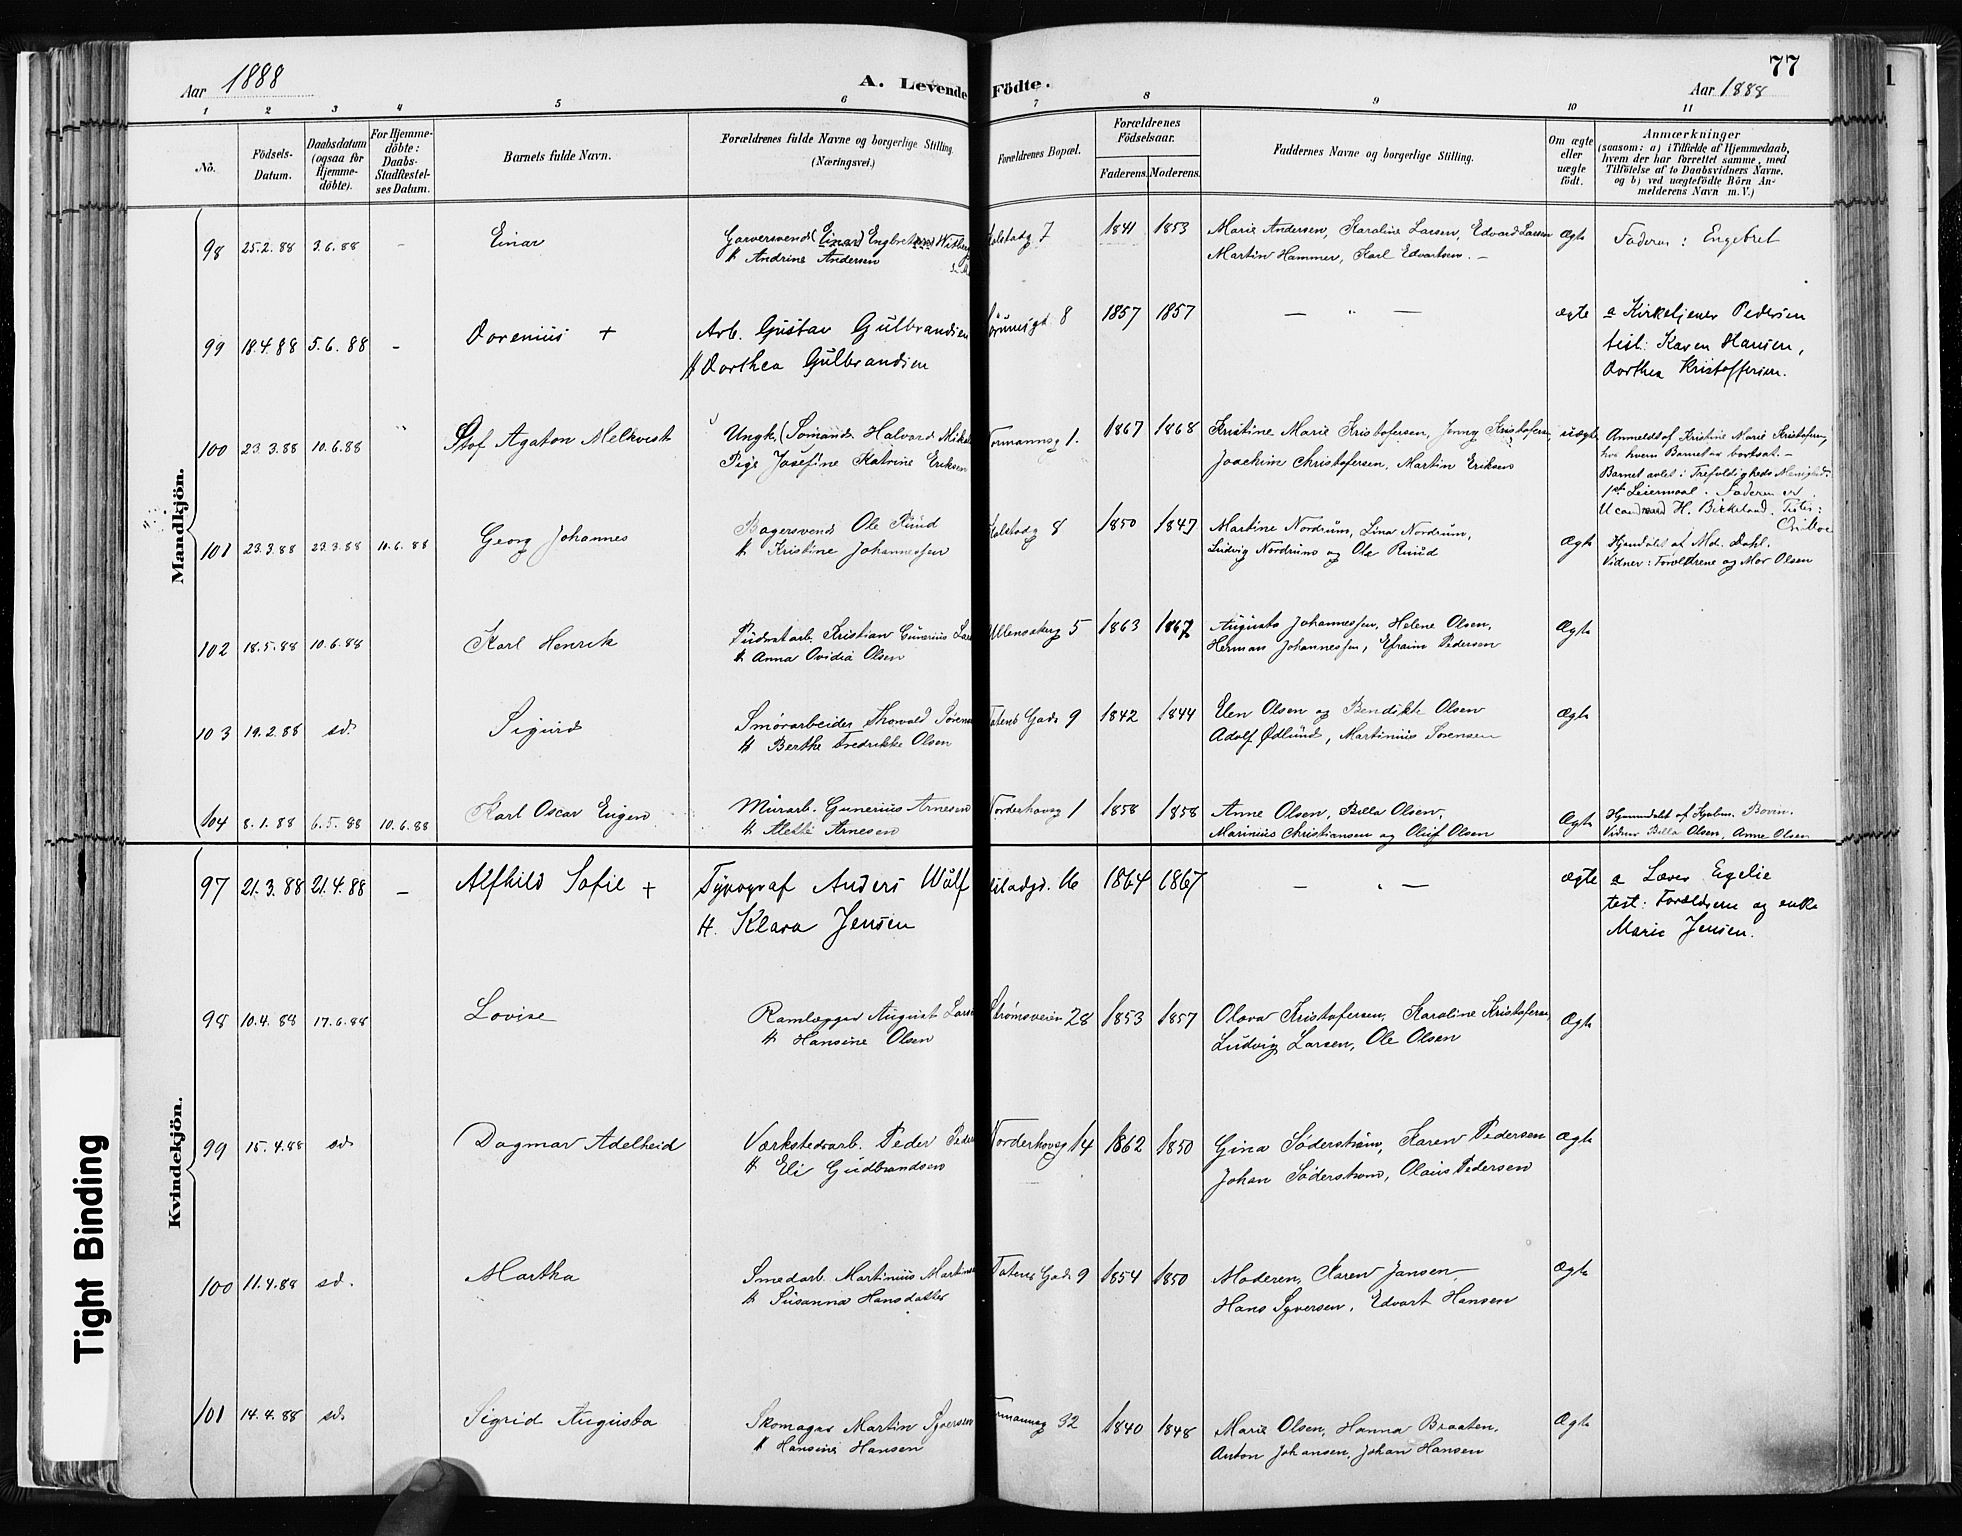 Aar 1888
A. Levende Födte.
77
Aar 1888
1 2 3 4 5 6 7 8 9 10 11
No.
Födsels-Datum.
Daabsdatum (ogsaa for Hjemme-döbte).
For Hjemme-döbte: Daabs-Stadfæstel-ses Datum.
Barnets fulde Navn.
Forældrenes fulde Navne og borgerlige Stilling. (Næringsvei.)
Forældrenes Bopæl.
Forældrenes Födselsaar.
Faderens. Moderens.
Faddernes Navne og borgerlige Stilling.
Om ægte eller uægte födt.
Anmærkninger
(saasom: a) i Tilfælde af Hjemmedaab,
hvem der har forrettet samme, med
Tilföielse af to Daabsvidners Navne,
og b) ved uægtefödte Börn An-
melderens Navn m. V.)
Mandkjön.
98 25.2.88 3.6.88 - Einar Garversvend (Einar) Engbretsen 7 1841 1853 Marie Andersen, Karoline Larsen, Edvard Larsen Ægte Faderen: Engebret
H. Andrine Andersen Martin Hammer, Karl Edvartsen. -
99 18.4.88 5.6.88 - Dorenius + Arb. Gustav Gulbrandsen 8 1857 1857 — " — ægte a Kirketjener Pedersen
H Dorthea Gulbrandsen test: Karen Hansen,
Dorthea Kristoffersen.
100 23.3.88 10.6.88 " Olof Agaton Melkvist Ungk. (Sömand) Halvard 1. 1867 1868 Kristine Marie Kristofersen, Jenny Kristofersen uægte Anmeldt af Kristine Marie Kristofersen,
Pige Josefine Katrine Eriksen Joachim Christofersen, Martin Eriksen hos hvem Barnet er bortsat. -
Barnet avlet i Trefoldigheds Menighed.
1ste Leiermaal. Faderen er
H. Birkeland.
101 23.3.88 23.3.88 10.6.88 Georg Johannes Bagersvend Ole Ruud 8 1850 1847 Martine Nordrum, Lina Nordrum, Ægte Hjemdöbt af Md. Dahl.
H. Kristine Johannessen Ludvig Nordrum og Ole Ruud Vidner: Forældrene og Mor Olsen
102 18.5.88 10.6.88 Karl Henrik Pudsetarb. Kristian Gunerius Ullensakerg 5 1863 1867 Augusta Johannessen, Helene Olsen, Ægte
H. Anna Ovidia Olsen Herman Johannessen, Efraim Pedersen
103 19.2.88 sd. Sigurd Smörarbeider Thorvald Gade 9 1842 1844 Elen Olsen og Bendikte Olsen Ægte
H. Berthe Fredrikke Olsen Adolf Ødlund, Martinius Sorensen
104 8.1.88 6.5.88 10.6.88 Karl Oscar Eugen Murarb. Gunerius Arnesen Norderhovsg 1 1858 1858 Anne Olsen, Billa Olsen, Ægte Hjemmedöbt af
H. Arnesen Marinius Christiansen og Oluf Olsen Vidner Billa Olsen, Anne Olsen
Kvindekjön.
97 21.3.88 21.4.88 - Alfhild Sofie + Typograf Anders Wulf 16 1864 1867 — " — ægte a Lærer Egelie
H. Klara Jensen test: Forældrene og enke
Marie Jensen.
98 10.4.88 17.6.88 Lovise Ramlægger August Strømsveien 28 1853 1857 Olava Kristofersen, Karoline Kristofersen, Ægte
H. Hansine Olsen Ludvig Larsen, Ole Olsen
99 15.4.88 sd. Dagmar Adelheid Værkstedsarb. Peder Norderhovsg 14 1862 1850 Gina Söderström, Karen Pedersen Ægte
H. Eli Gudbrandsen Johan Söderstrom, Olaus Pedersen
100 11.4.88 sd. Martha Smedarb. Martinius Gade 9 1854 1850 Moderen, Karen Jansen, Ægte
H. Susanna Hansdatter Hans Syversen, Edvart Hansen
101 14.4.88 sd. Sigrid Augusta Skomager Martin Syversen 32 1840 1848 Marie Olsen, Hanna Braaten, Ægte
H. Hansine Hansen Anton Johansen, Johan Hansen
Tight Binding